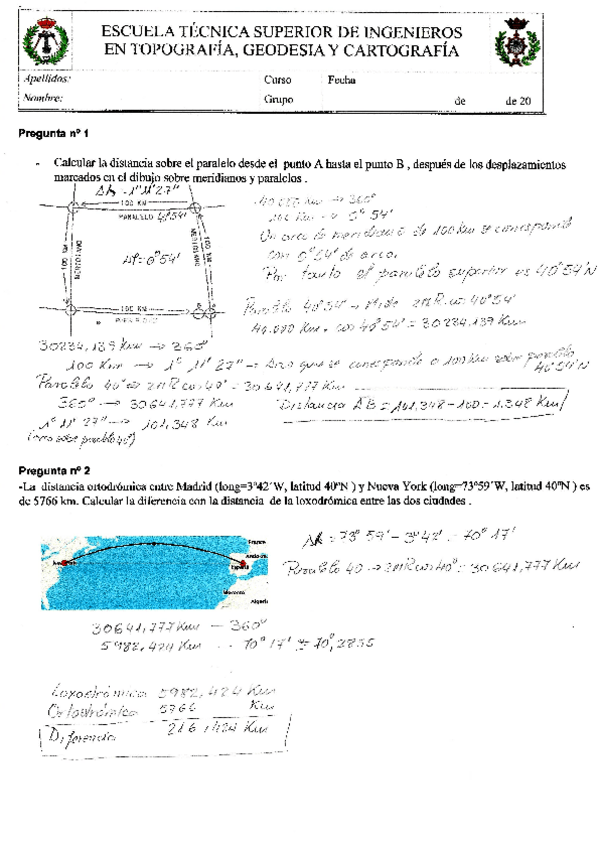 ESCUELA TÉCNICA SUPERIOR DE INGENIEROS
EN TOPOGRAFÍA, GEODESIA Y CARTOGRAFÍA
Apellidos:
Curso
Fecha
Nombre:
Grupo
de
de 20
Pregunta nº 1
- Calcular la distancia sobre el paralelo desde el punto A hasta el punto B , después de los desplazamientos
marcados en el dibujo sobre meridianos y paralelos .
1º 11' 27"
100 KM
PARALELO 40º54'
MERIDIANO
100 KM
MERIDIANO
100 KM
Δφ=0º54'
100 KM
40.000 Km → 360º
100 Km → 0º 54'
Un arco de meridiano de 100 Km se corresponde
con 0º 54' de arco.
Por tanto el paralelo superior es 40º54'N
Paralelo 40º54' → Mide 2πR cos 40º54'
cos 40º54' = 30234,139 Km
30234,139 Km → 360º
100 Km → 1º 11' 27" → Arco que se corresponde a 100 Km sobre paralelo
40º54'N
Paralelo 40º ⇒ 2πR cos 40º = 30641,777 Km
360º → 30641,777 Km
1º 11' 27" → 101,348 Km
(arco sobre paralelo 40º)
Distancia AB = 101,348 - 100 = 1.348 Km
Pregunta nº 2
-La distancia ortodrómica entre Madrid (long=3º42´W, latitud 40ºN ) y Nueva York (long=73º59´W, latitud 40ºN ) es
de 5766 km. Calcular la diferencia con la distancia de la loxodrómica entre las dos ciudades .
France
España
Morocco
Algeria
= 73º 59' - 3º42' = 70º 17'
Paralelo 40 → 2πR cos 40º = 30641,777 Km
30641,777 Km — 360º
5982,424 Km 70º 17'
Loxodrómica 5982,424 Km
Ortodrómica 5766 Km
Diferencia 216,424 Km